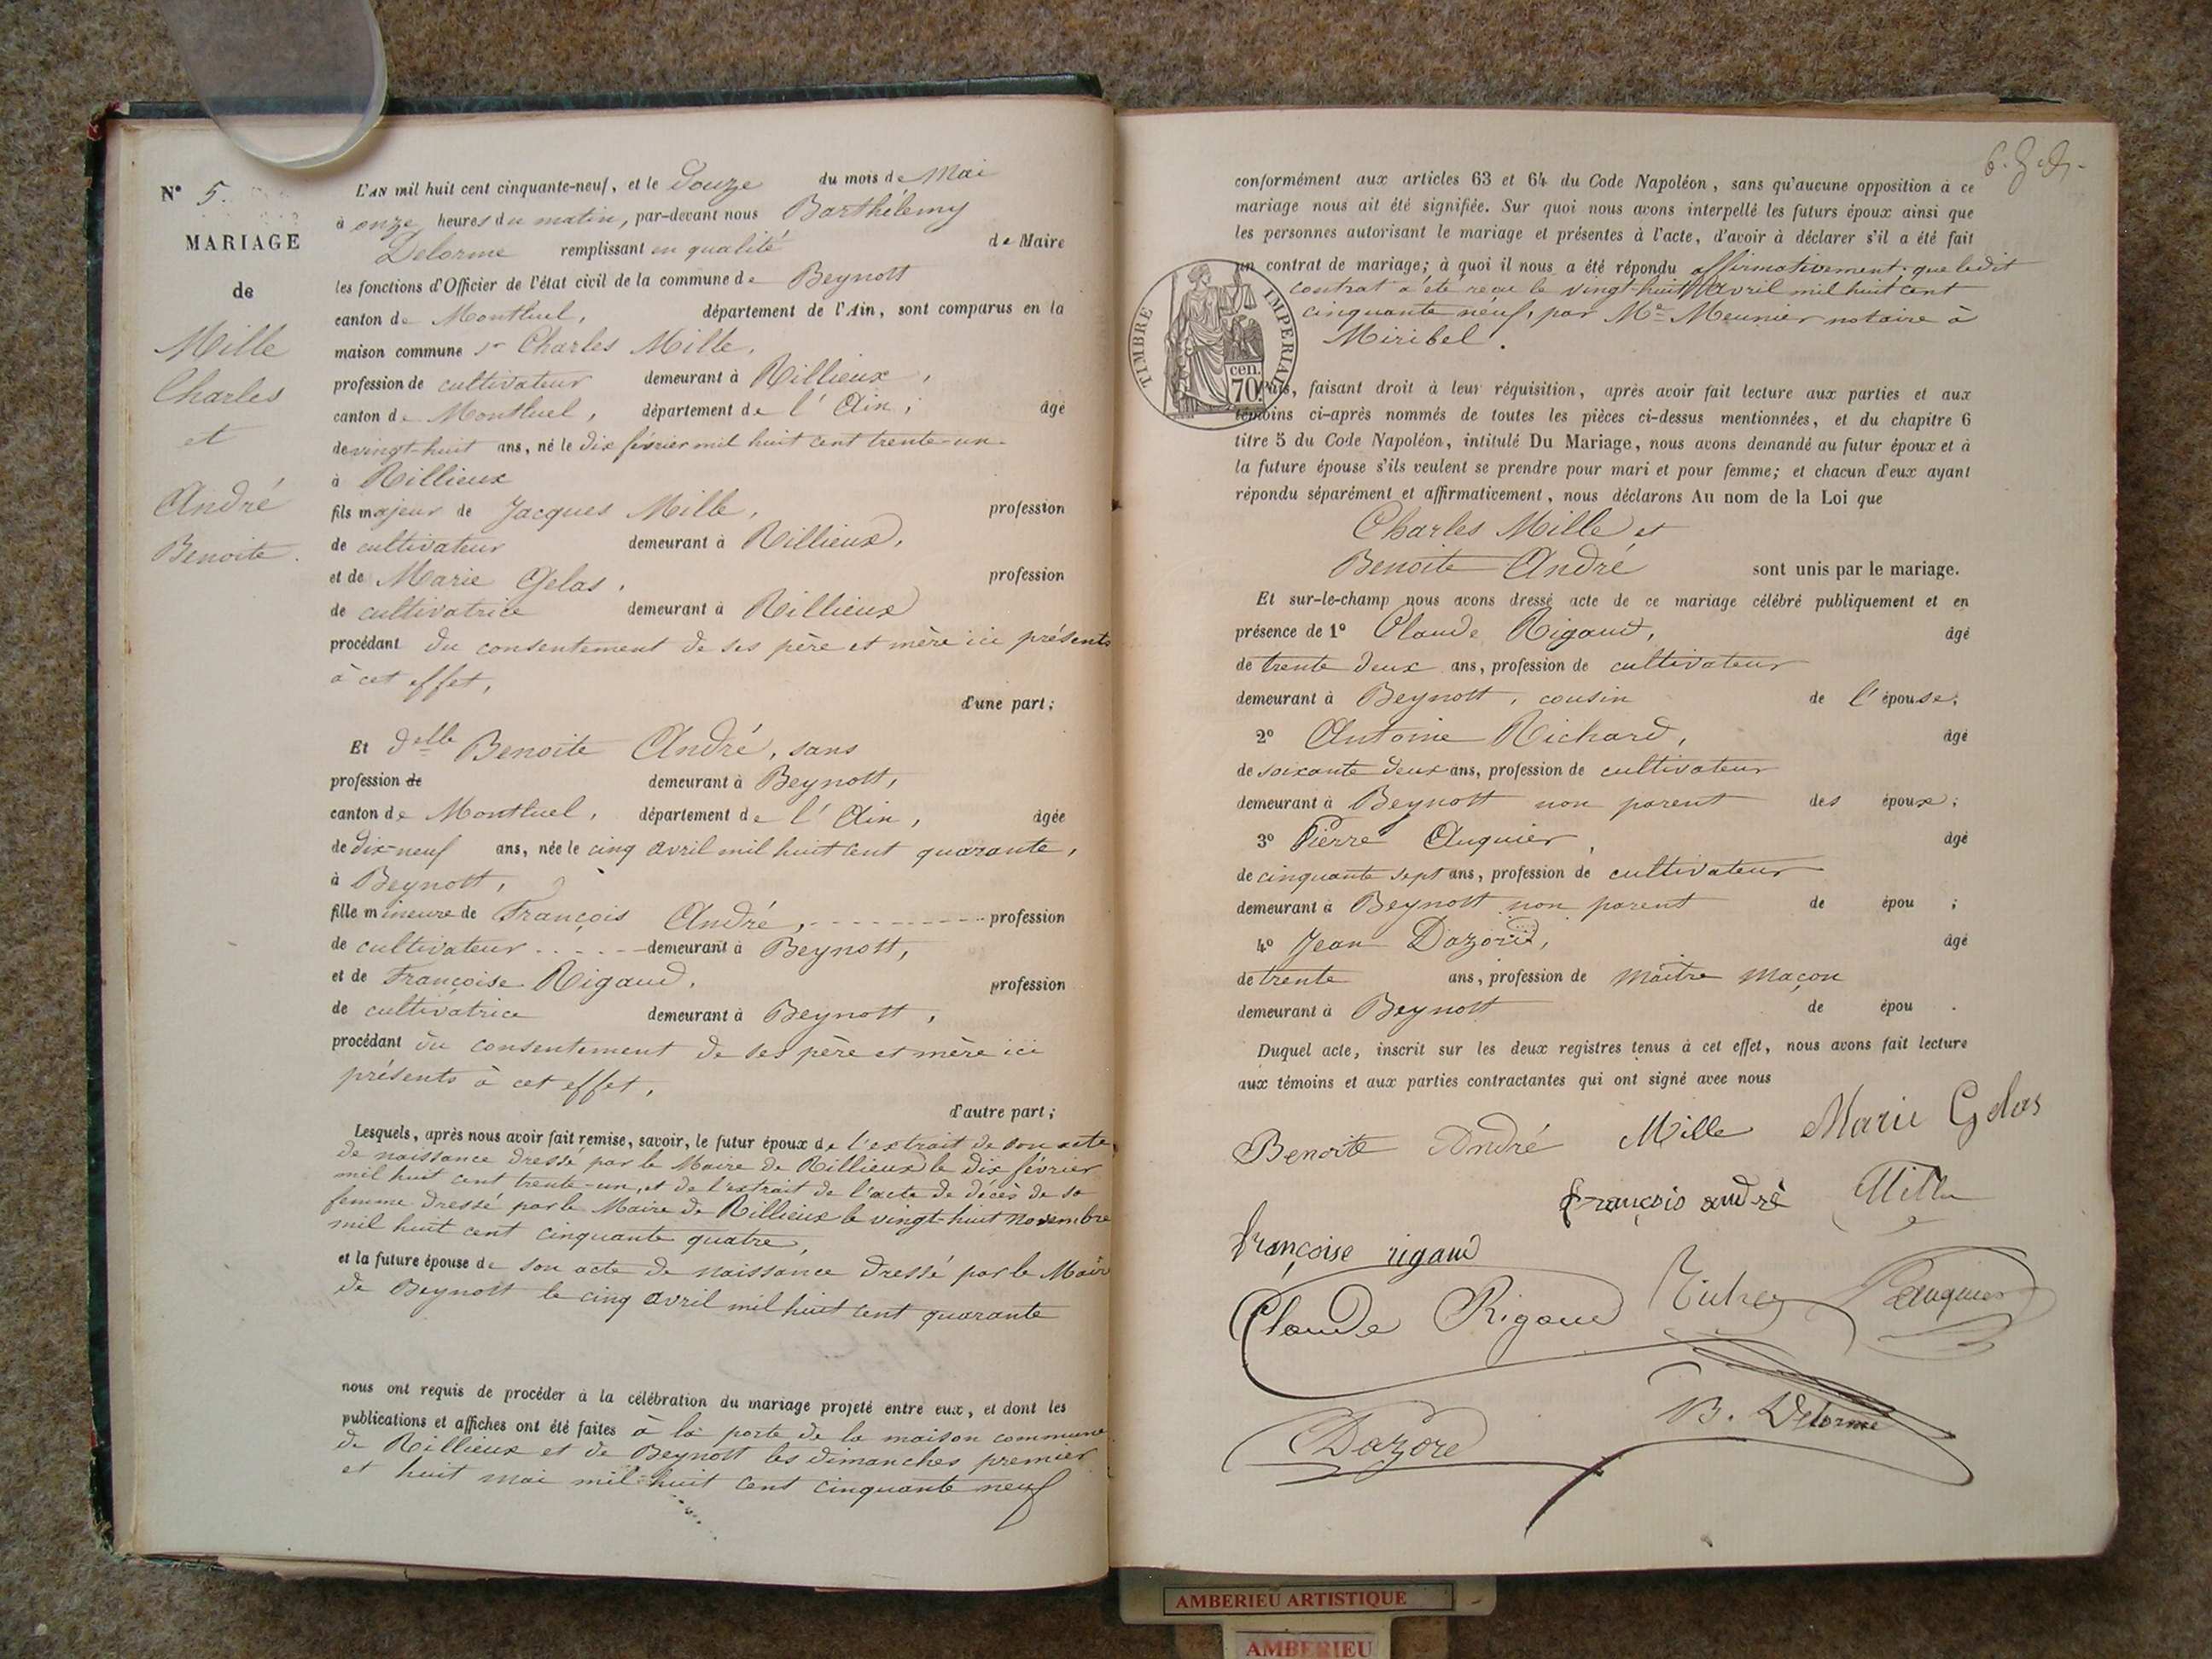 N° 5.
MARIAGE
de
Mille
Charles
et
André
Benoite.
L'AN mil huit cent cinquante-neuf, et le Douze du mois de Mai
à onze heures du matin, par-devant nous Barthélemy
Delorme remplissant en qualité de Maire
les fonctions d'Officier de l'état civil de la commune de Beynost
canton de Montluel, département de l'Ain, sont comparus en la
maison commune sr Charles Mille,
profession de cultivateur demeurant à Rillieux,
canton de Montluel, département de l'Ain, âgé
de vingt-huit ans, né le dix février mil huit cent trente-un
à Rillieux
fils majeur de Jacques Mille, profession
de cultivateur demeurant à Rillieux,
et de Marie Gelas, profession
de cultivatrice demeurant à Rillieux
procédant du consentement de ses père et mère ici présents
à cet effet,
d'une part;
Et delle Benoite André, sans
profession de demeurant à Beynost,
canton de Montluel, département de l'Ain, âgée
de dix-neuf ans, née le cinq avril mil huit cent quarante,
à Beynost,
fille mineure de François André, profession
de cultivateur demeurant à Beynost,
et de Françoise Rigaud, profession
de cultivatrice demeurant à Beynost,
procédant du consentement de ses père et mère ici
présents à cet effet,
d'autre part;
Lesquels, après nous avoir fait remise, savoir, le futur époux de l'extrait de son acte
de naissance dressé par le Maire de Rillieux le dix février
mil huit cent trente-un, et de l'extrait de l'acte de décès de sa
femme dressé par le Maire de Rillieux le vingt-huit novembre
mil huit cent cinquante quatre,
et la future épouse de son acte de naissance dressé par le Maire
de Beynost le cinq avril mil huit cent quarante
nous ont requis de procéder à la célébration du mariage projeté entre eux, et dont les
publications et affiches ont été faites à la porte de la maison commune
de Rillieux et de Beynost les dimanches premier
et huit mai mil huit cent cinquante neuf
conformément aux articles 63 et 64 du Code Napoléon, sans qu'aucune opposition à ce
mariage nous ait été signifiée. Sur quoi nous avons interpellé les futurs époux ainsi que
les personnes autorisant le mariage et présentes à l'acte, d'avoir à déclarer s'il a été fait
un contrat de mariage; à quoi il nous a été répondu affirmativement, que ledit
contrat a été reçu le vingt-huit avril mil huit cent
cinquante neuf, par Me Meunier notaire à
Miribel.
TIMBRE IMPERIAL
cen.
70
Puis, faisant droit à leur réquisition, après avoir fait lecture aux parties et aux
témoins ci-après nommés de toutes les pièces ci-dessus mentionnées, et du chapitre 6
titre 5 du Code Napoléon, intitulé Du Mariage, nous avons demandé au futur époux et à
la future épouse s'ils veulent se prendre pour mari et pour femme; et chacun d'eux ayant
répondu séparément et affirmativement, nous déclarons Au nom de la Loi que
Charles Mille et
Benoite André sont unis par le mariage.
Et sur-le-champ nous avons dressé acte de ce mariage célébré publiquement et en
présence de 1° Claude Rigaud, âgé
de trente deux ans, profession de cultivateur
demeurant à Beynost, cousin de l'épouse;
2° Antoine Richard, âgé
de soixante deux ans, profession de cultivateur
demeurant à Beynost non parent des époux;
3° Pierre Auquier, âgé
de cinquante sept ans, profession de cultivateur
demeurant à Beynost non parent de épou ;
4° Jean Dazord, âgé
de trente ans, profession de maître maçon
demeurant à Beynost de épou .
Duquel acte, inscrit sur les deux registres tenus à cet effet, nous avons fait lecture
aux témoins et aux parties contractantes qui ont signé avec nous
Benoite André Mille Marie Gelas
françois andré Mille
françoise rigaud
Claude Rigaud
B. Delorme
Dazord
AMBERIEU ARTISTIQUE
AMBERIEU